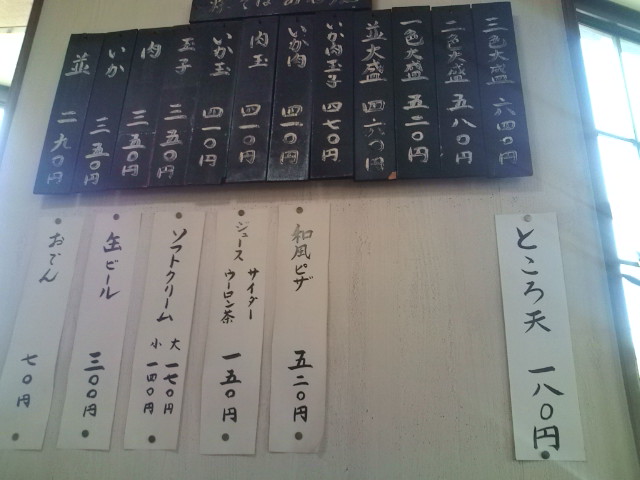 三色大盛 六四〇円
二色大盛 五八〇円
一色大盛 五二〇円
並大盛 四六〇円
いか肉玉子 四七〇円
いか肉 四一〇円
肉玉 四一〇円
いか玉 四一〇円
玉子 三五〇円
肉 三五〇円
いか 三五〇円
並 二九〇円
ところ天 一八〇円
和風ピザ 五二〇円
ジュース サイダー ウーロン茶 一五〇円
ソフトクリーム 大 一七〇円 小 一四〇円
缶ビール 三〇〇円
おでん 七〇円